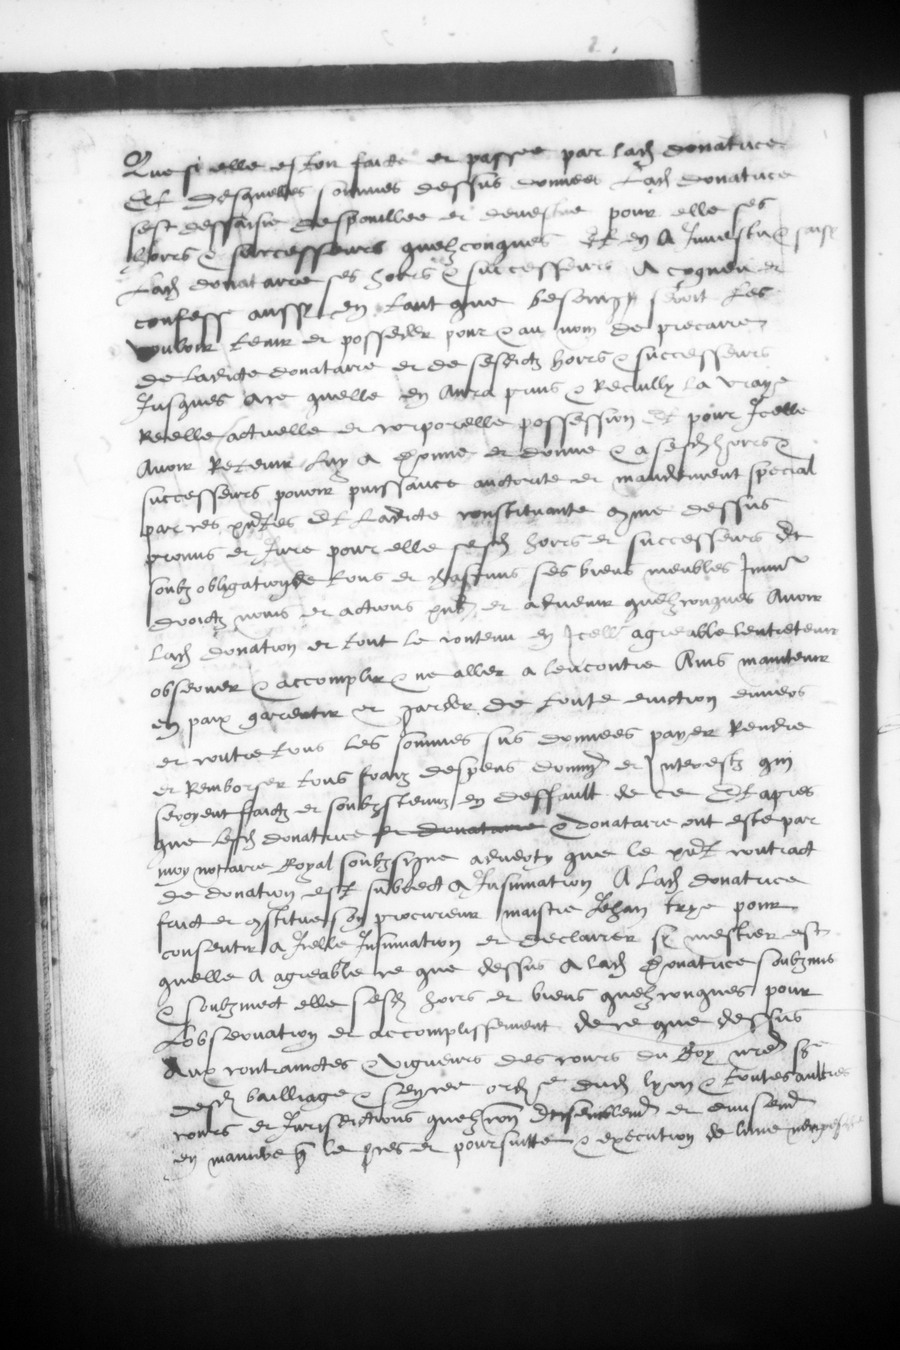 Que si elle estoit faicte et passee par lad donatrice
Et desquelles sommes dessus donnees lad donatrice
sest dessaisie despouillee et devestue pour elle ses
hoirs & successeurs quelzconques Et en A Investu & saisy
Lad donataire ses hoirs & successeurs A cogneu et
confesse aussy en tant que besoing seroit Les
vouloir tenir et posseder pour & au nom de precaire
de Ladicte donataire et de sesdictz hoirs & successeurs
Jusques a ce quelle en Aura prins & Recully la vraye
Reelle actuelle et corporelle possession Et pour Icelle
Avoir Retenir Luy A donne et donne & a sesd hoirs &
successeurs povoir puissance auctorite et mandement special
par ces pntes Et Ladicte constituante come dessus
promis et Jure pour elle sesd hoirs et successeurs Et
soubz obligation de tous et chascuns ses biens meubles Immes
droictz noms et actions pns et advenir quelzconques Avoir
Lad donation et tout le contenu en Icelle agreable lentretenir
observer & accomplir & ne aller a lencontre Ains maintenir
en paix garentir et garder de toute eviction envers
et contre tous les sommes sus donnees payer Rendre
et Remborser tous fraiz despens dommz et Interestz qui
seroyent faictz et soubzstenuz en deffault de ce Et apres
que lesd donatrice et donataire & donataire ont este par
moy notaire Royal soubzsigne advertiz que le pnt contract
de donation est subject A Insinuation A Lad donatrice
faict et constitue son procureur maistre Jehan pour
consentir A Icelle Insinuation et declairer sy mestier est
quelle A agreable ce que dessus A lad donatrice soubzmis
& soubzmect elle sesd hoirs et biens quelzconques pour
Lobservation et accomplissement de ce que dessus
Aux contrainctes & vigueurs des cours du Roy nre sr
desd bailliage & senee ord de dud lyon & toutes aultres
cours et Jurisdictions quelzcon Et ensemblemt et divisemt
en maniere q le pres et poursuitte & execution de lune nempesche